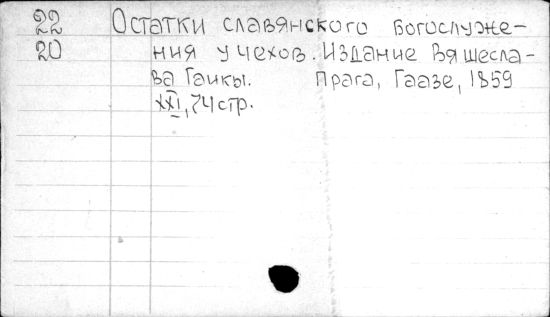 22 Остатки славянского богослуже-
20 ния у чехов. Издание Вяшесла-
ва Ганкы. Прага, Гаазе, 1859
XXI, 74 стр.